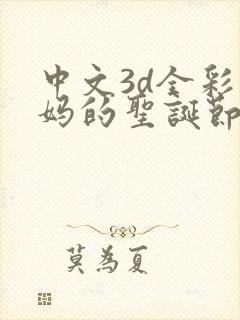 中文3d全彩
妈的聖誕節
莫為夏